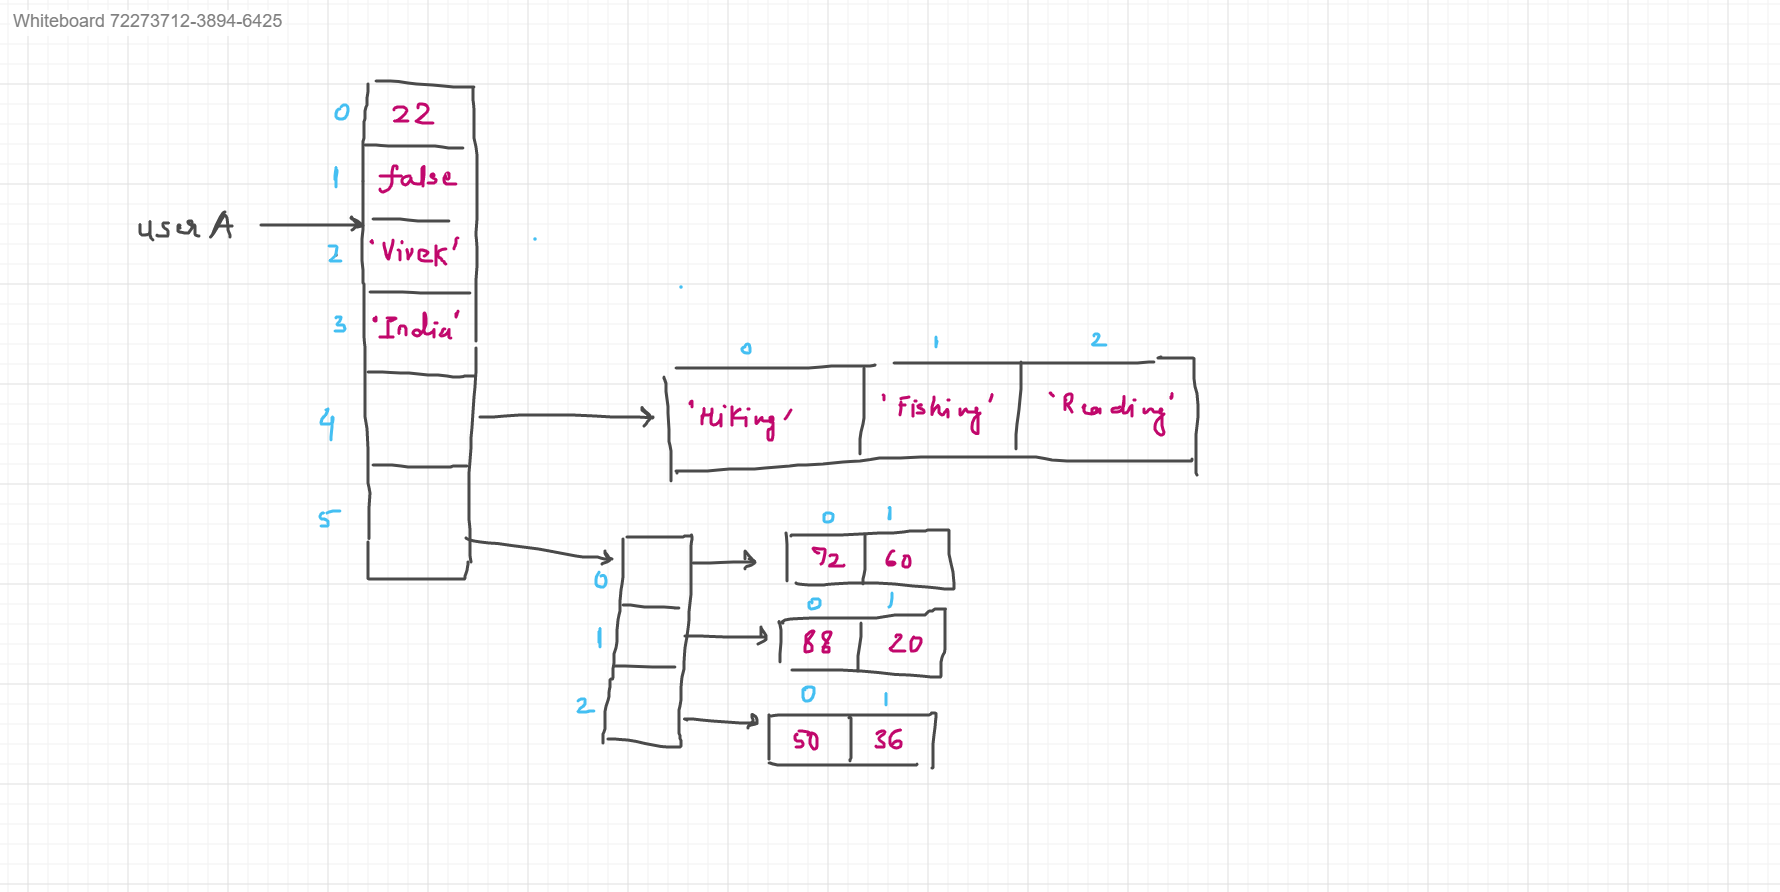 Whiteboard 72273712-3894-6425
0 22
1 false
user A
2 'Vivek'
3 'India'
0 1 2
4 'Hiking' 'Fishing' 'Reading'
5
0 1
0 72 60
0 1
1 88 20
0 1
2 50 36